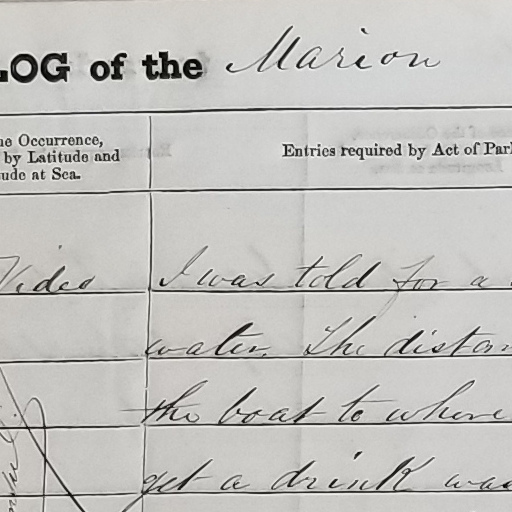 LOG of the Marion
he Occurrence,
by Latitude and
ude at Sea.
Entries required by Act of Parl
Video I was told for a
water. The distan
the boat to where
get a drink was